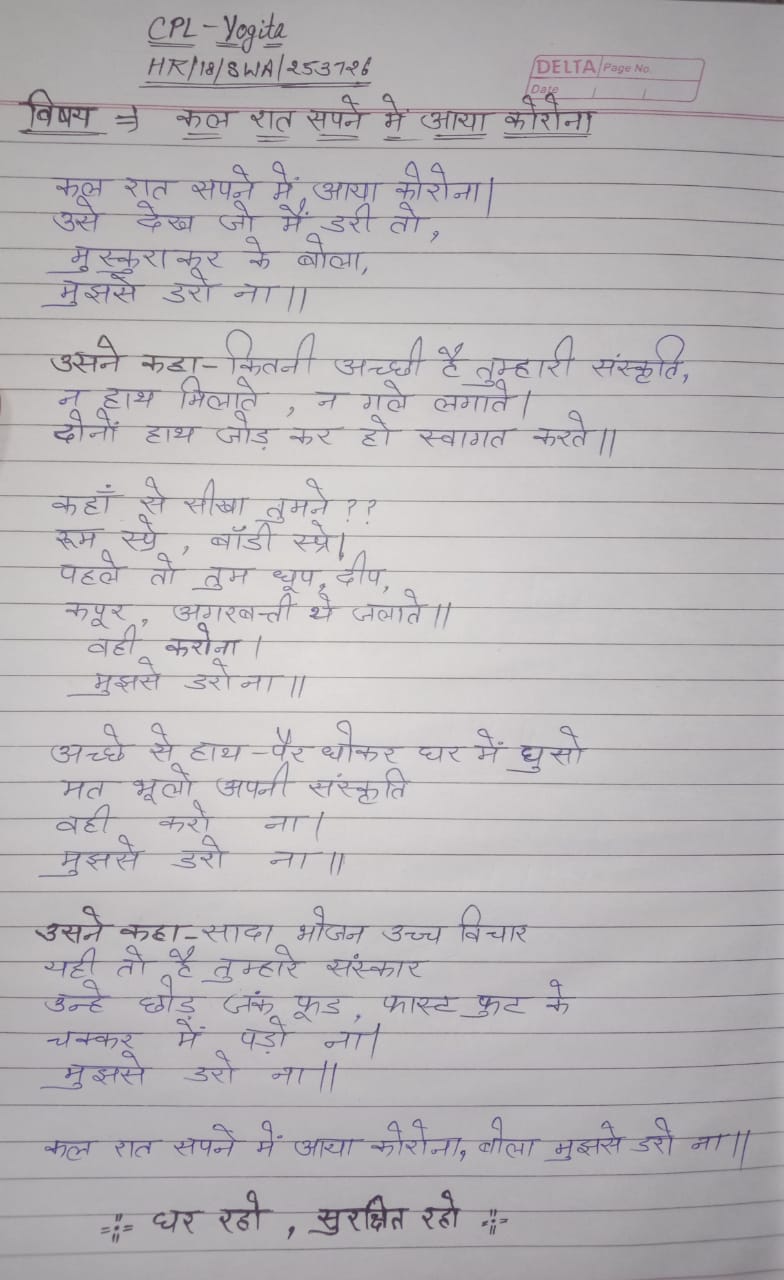 CPL - Yogita
HR/18/SWA/253726
DELTA Page No.
Date
विषय ⇒ कल रात सपने में आया कोरोना
कल रात सपने में आया कोरोना।
उसे देख जो मैं डरी तो,
मुस्कुराकर के बोला,
मुझसे डरो ना॥
उसने कहा- कितनी अच्छी है तुम्हारी संस्कृति,
न हाथ मिलाते, न गले लगाते।
दोनों हाथ जोड़ कर हो स्वागत करते॥
कहाँ से सीखा तुमने??
रूम स्प्रे, बॉडी स्प्रे।
पहले तो तुम धूप, दीप,
कपूर, अगरबत्ती थे जलाते॥
वही करोना।
मुझसे डरो ना॥
अच्छे से हाथ-पैर धोकर घर में घुसो
मत भूलो अपनी संस्कृति
वही करो ना।
मुझसे डरो ना॥
उसने कहा- सादा भोजन उच्च विचार
यही तो है तुम्हारे संस्कार
उन्हे छोड़ जंक फूड, फास्ट फुट के
चक्कर में पड़ो ना।
मुझसे डरो ना॥
कल रात सपने में आया कोरोना, बोला मुझसे डरो ना॥
घर रहो, सुरक्षित रहो